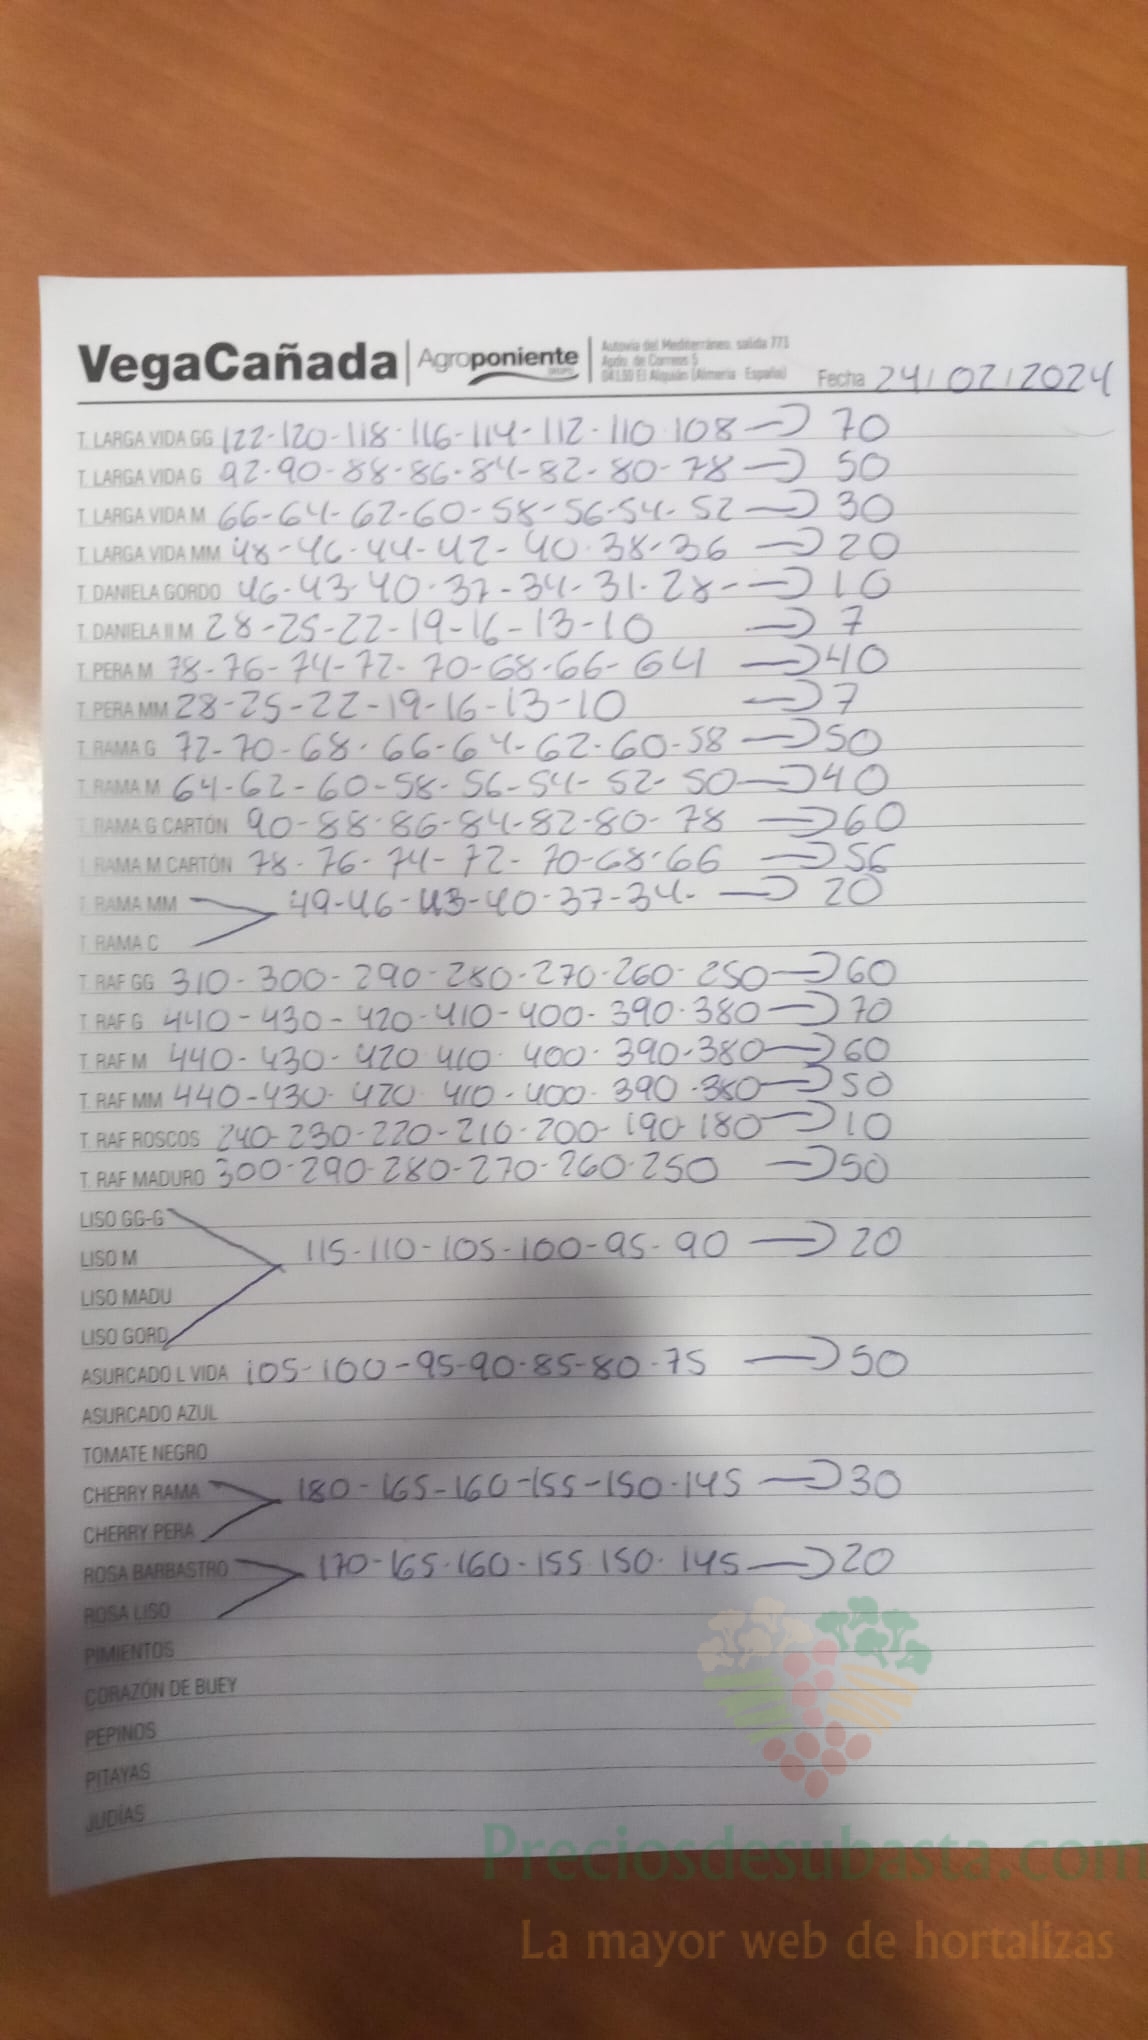 VegaCañada | Agroponiente
GRUPO
Autovía del Mediterráneo, salida 771
Apdo. de Correos 5
04130 El Alquián (Almería - España)
Fecha 24/02/2024
T. LARGA VIDA GG 122-120-118-116-114-112-110-108→70
T. LARGA VIDA G 92-90-88-86-84-82-80-78→50
T. LARGA VIDA M 66-64-62-60-58-56-54-52→30
T. LARGA VIDA MM 48-46-44-42-40-38-36→20
T. DANIELA GORDO 46-43-40-37-34-31-28-→10
T. DANIELA II M 28-25-22-19-16-13-10→7
T. PERA M 78-76-74-72-70-68-66-64→40
T. PERA MM 28-25-22-19-16-13-10→7
T. RAMA G 72-70-68-66-64-62-60-58→50
T. RAMA M 64-62-60-58-56-54-52-50→40
T. RAMA G CARTÓN 90-88-86-84-82-80-78→60
T. RAMA M CARTÓN 78-76-74-72-70-68-66→56
T. RAMA MM 49-46-43-40-37-34-→20
T. RAMA C
T. RAF GG 310-300-290-280-270-260-250→60
T. RAF G 440-430-420-410-400-390-380→70
T. RAF M 440-430-420-410-400-390-380→60
T. RAF MM 440-430-420-410-400-390-380→50
T. RAF ROSCOS 240-230-220-210-200-190-180→10
T. RAF MADURO 300-290-280-270-260-250→50
LISO GG-G
LISO M 115-110-105-100-95-90→20
LISO MADU
LISO GORD
ASURCADO L VIDA 105-100-95-90-85-80-75→50
ASURCADO AZUL
TOMATE NEGRO
CHERRY RAMA 180-165-160-155-150-145→30
CHERRY PERA
ROSA BARBASTRO 170-165-160-155-150-145→20
ROSA LISO
PIMIENTOS
CORAZÓN DE BUEY
PEPINOS
PITAYAS
JUDÍAS
Preciosdesubasta.com
La mayor web de hortalizas